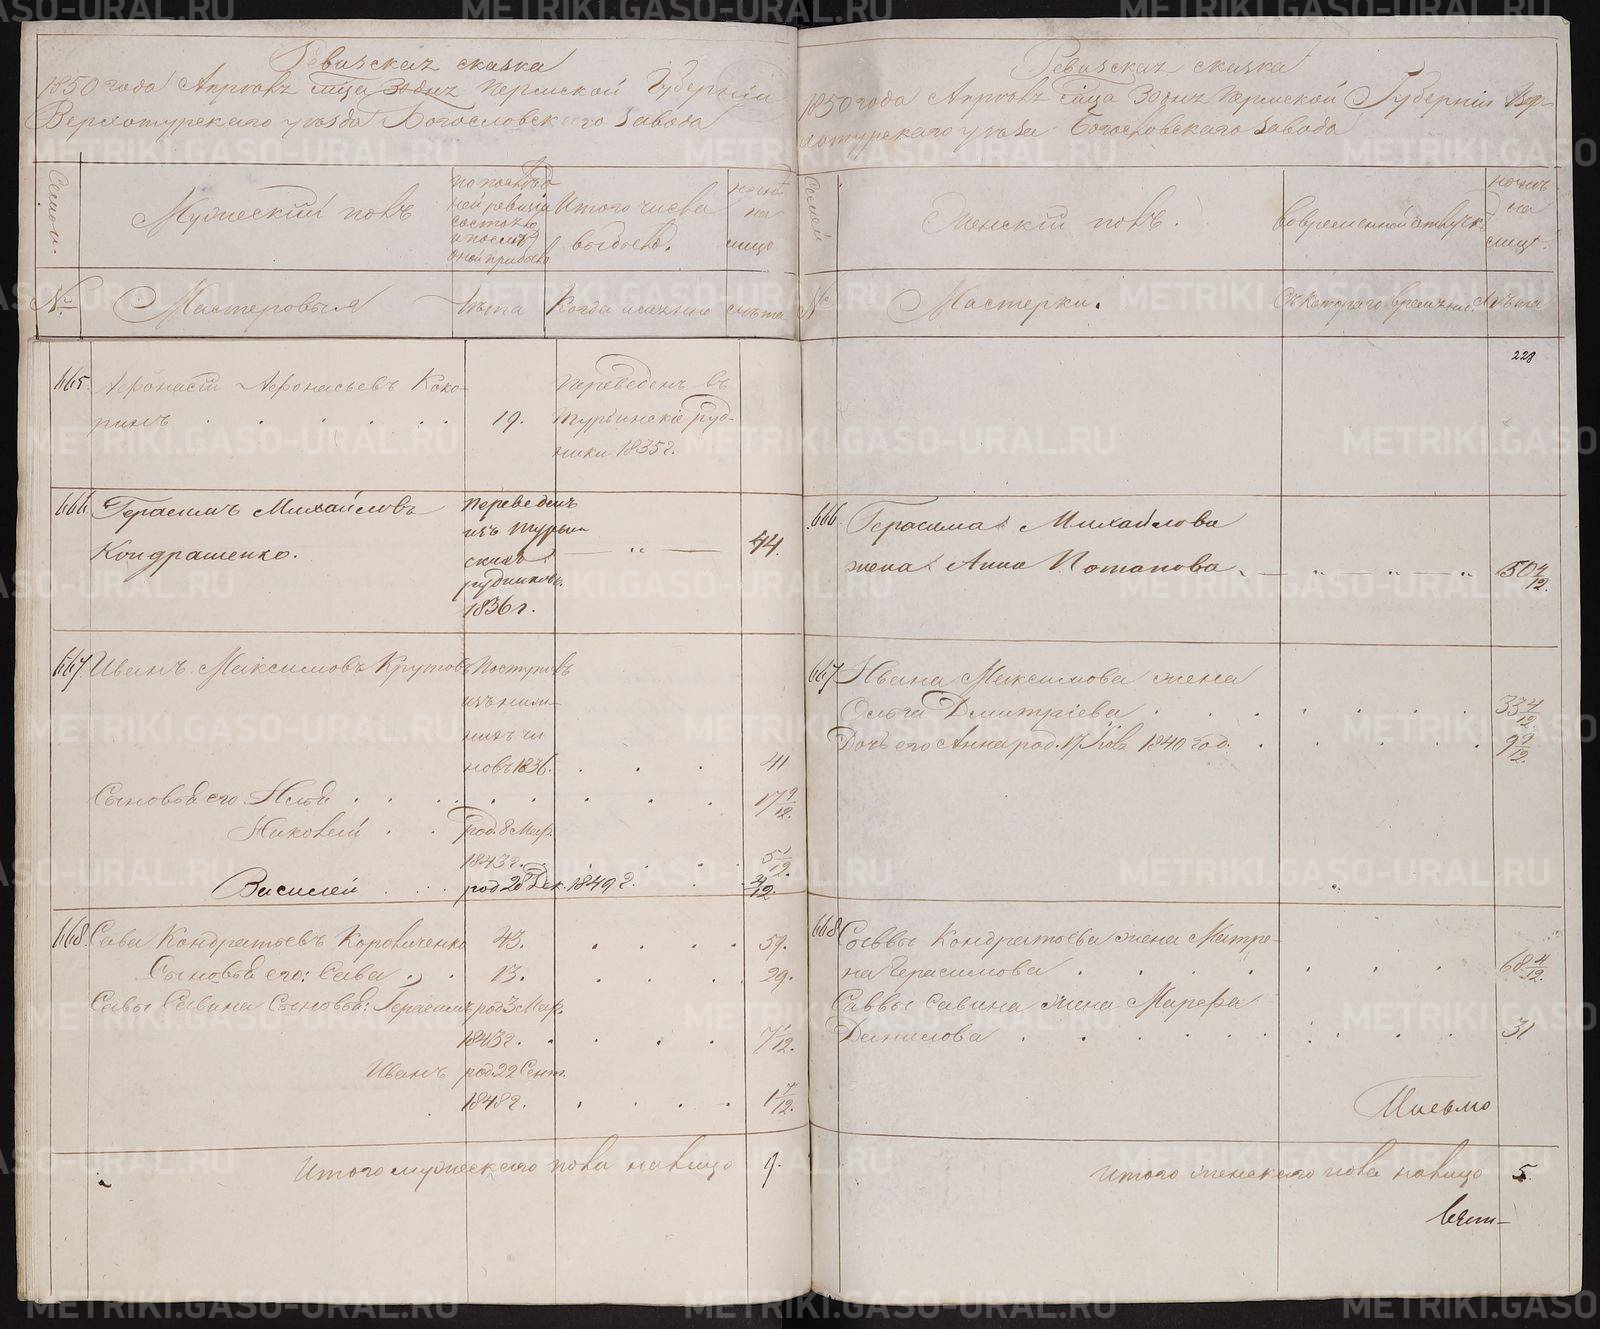 Ревизская сказка
1850 года Апреля м-ца 30 дня Пермской Губернии
Верхотурскаго уезда Богословскаго завода
Семьи.
Мужеский полъ
по последней ревизии состояло и после оной прибыло
Изтого числа выбыло.
ныне на лицо
№
Мастеровыя
Лета
Когда именно
Лета
665.
Афонасій Афонасьевъ Коко-
ринъ
19.
Переведенъ в
Турьинскіе руд-
ники 1835 г.
666.
Герасимъ Михайловъ
Кондрашенко.
Переведенъ
изъ Турьин
скихъ
рудниковъ
1836 г.
44.
667.
Иванъ Максимовъ Крутовъ
Поступилъ
изъ ниж-
нихъ чи
новъ 1836.
41
Сыновья его Илья
17 9/12.
Николай
род. 8 Мар.
1843 г.
5 1/12.
Василей
род 20 Дек. 1849 г.
4/12.
668.
Сава Кондратьевъ Коровиченко
43.
59.
Сыновья его: Сава
13.
29.
Савы Савина Сыновья: Герасимъ
род 3 Мар.
1843 г.
7 1/12.
Иванъ
род. 22 Сент.
1848 г.
1 7/12.
Итого мужескаго пола налицо
9.
Ревизская сказка
1850 года Апреля м-ца 30 дня Пермской Губерніи Вер-
хотурскаго уезда Богословскаго завода
Семьи
Женскій полъ.
Вовременной отлучке
ныне на лице.
№
Мастерки.
Съ котораго времени.
Лета
228
666.
Герасима Михайлова
жена Анна Потапова
50 4/12.
667
Ивана Максимова жена
Ольга Дмитріева
33 4/12.
Дочь его Анна род. 17 Іюля 1840 год.
9 9/12.
668
Саввы Кондратьева жена Матре-
на Герасимова
68 4/12.
Саввы Савина жена Марефа
Данилова
31
Итого женскаго пола налицо
5.
METRIKI.GASO-URAL.RU